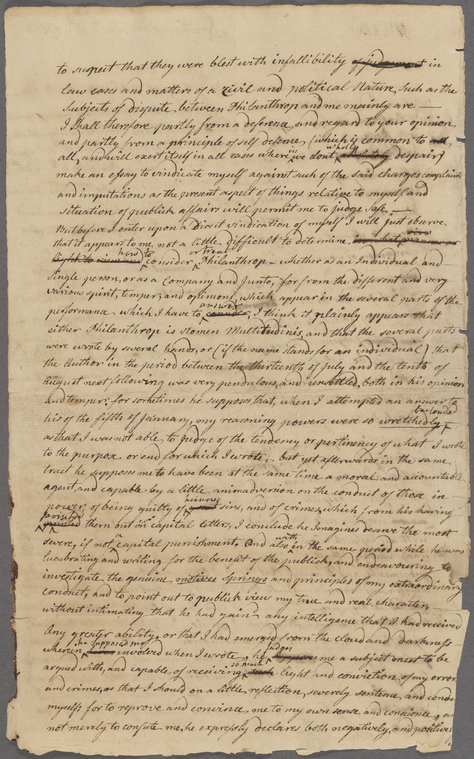 to suspect that they were blest with infallibility of judgment in
law cases and matters of a civil and political Nature, such as the
Subjects of dispute, between Philanthrop and me mainly are —
I shall therefore partly from a deference and regard to your opinion
and partly from a principle of self defence, (which is common to
all, and will exert itself in all cases where we dont wholly despair)
make an essay to vindicate myself against such of the said charges complaints
and imputations as the present aspect of things relative to myself and
situation of publick affairs will permit me to judge safe —
But before I enter upon a Direct vindication of myself I will just observe
that it appears to me, not a little difficult to determine
how to consider or treat Philanthrop — whether as an Individual and
single person, or as a Company and Junto, for from the different and very
various spirit, temper, and opinions, which appear in the several parts of the
performance, which I have to answer, I think it plainly appears that
either Philanthrop is Nomen Multitudinis, and that the several parts
were wrote by several hands, or (if the name stands for an individual) that
the Author in the period between the thirteenth of July and the tenth of
August next following was very pendulous, and unsettled, both in his opinion
and temper; for sometimes he supposes that, when I attempted an answer to
his of the fifth of January, my reasoning powers were so wretchedly beclouded
as that I was not able to judge of the tendency or pertinency of what I wrote
to the purpose or end for which I wrote, — but yet afterwards in the same
tract he supposes me to have been at the same time a moral and accountable
agent, and capable by a little animadversion on the conduct of those in
power, of being guilty of heinous sins, and of crimes, which from his having
them out in capital letters, I conclude he Imagines deserve the most
severe, if not capital punishment, And also in the same period while he was
lucubrating and writing for the benefit of the publick, and endeavouring to
investigate the genuine, motives springs and principles of my extraordinary
conduct, and to point out to publick view my true and real character —
without intimating that he had gain'd any intelligence that I had received
Any greater ability, or that I had emerged from the cloud and darkness
wherein he supposed me involved when I wrote, he judges me a subject meet to be
argued with, and capable of receiving so much light and conviction of my error
and crimes, as that I should on a little reflection, severely sentence, and
myself for to reprove and convince me to my own sense and conscience,
not merely to confute me, he expressly declares both negatively, and